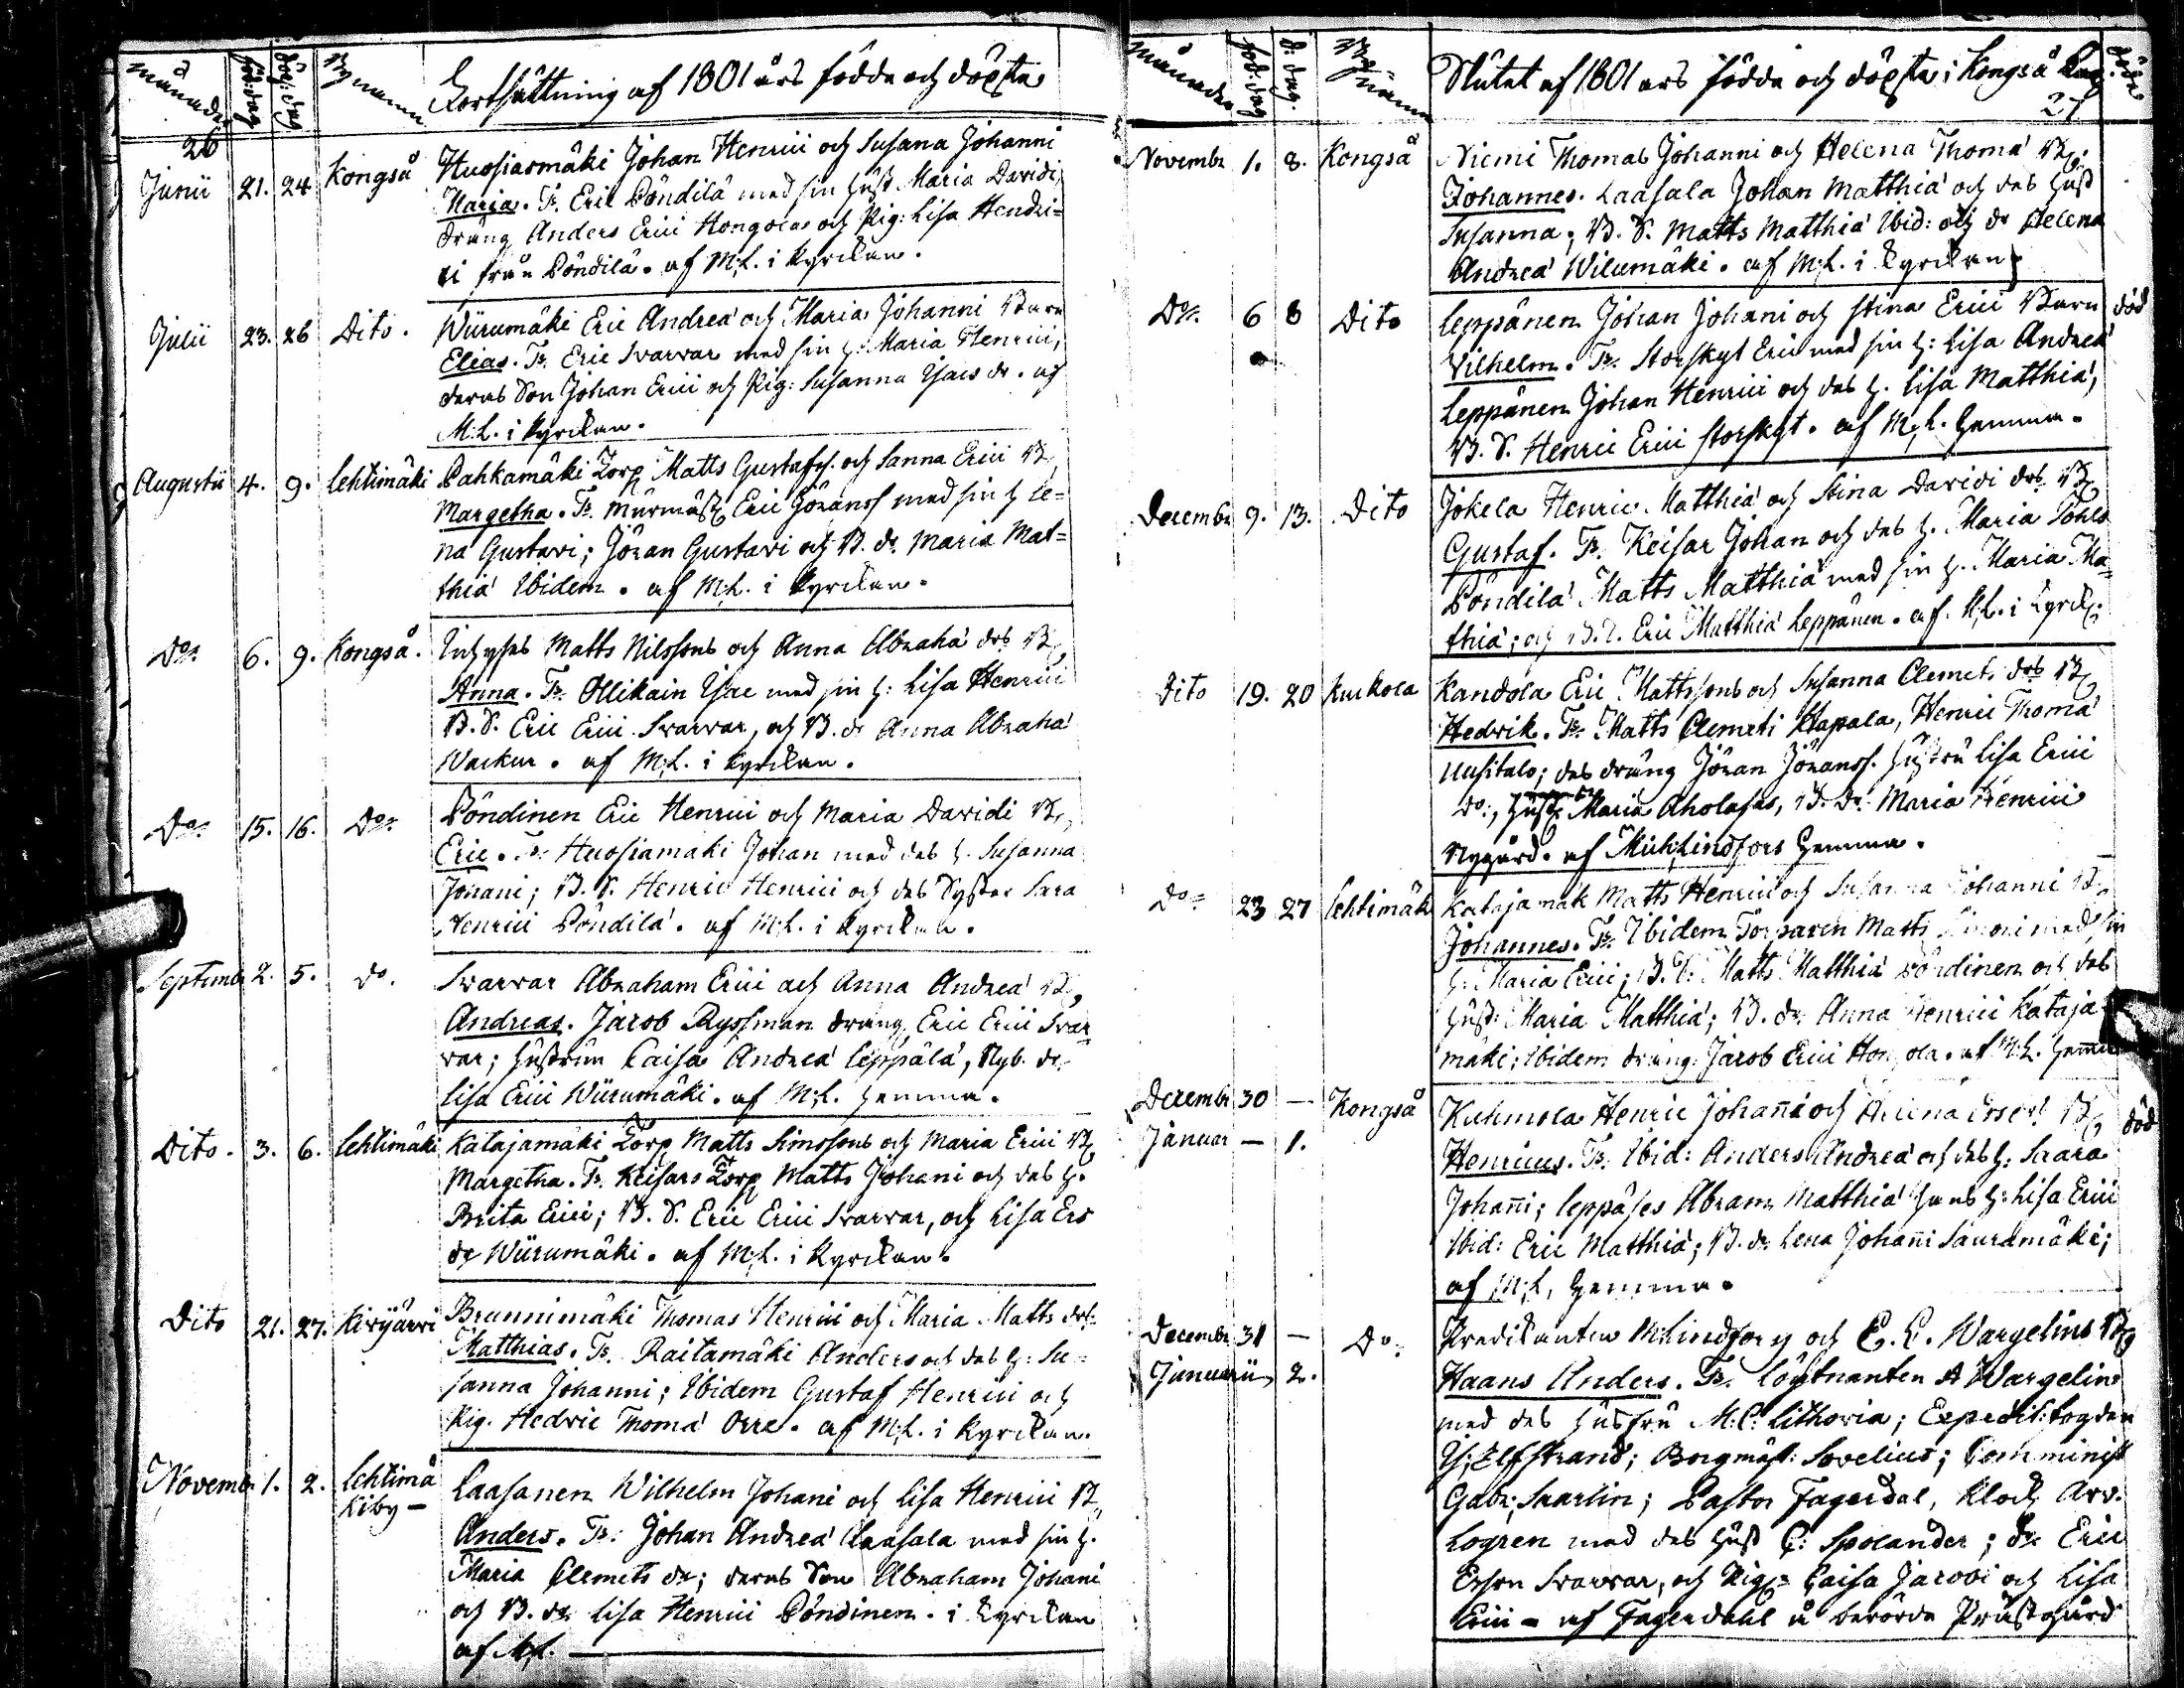 månader
föd: dag
döp: dag
Bynamn
Fortsättning af 1801 års födde och döpte
26
Junii 21. 24 Kongså Huosiarmäki Johan Henrici och Susana Johanni
Maria. Fr. Eric Pöndilä med sin hust. Maria Davidi,
dräng Anders Erici Hongola och Pig: Lisa Henri=
ci från Pöndilä. af M:L. i kyrckan.
Julii 23. 26 Dito. Wiirumäki Eric Andreæ och Maria Johanni Barn
Elias. Fr. Eric Svarvar med sin h. Maria Henrici,
deras Son Johan Erici och Pig: Susanna Isacs dr. af
M:L. i kyrckan.
Augusti 4. 9. Lehtimäki Pahkamäki Torp Matts Gustafss. och Sanna Erici B.
Margetha. Fr. Murmäst Eric Göranss med sin h Le=
na Gustavi; Jöran Gustavi och B. dr. Maria Mat=
thiæ Ibidem. af M:L. i kyrckan.
Do. 6. 9. Kongså. Matts Nilssons och Anna Abraha drs B.
Anna. Fr. Ollikain Isac med sin h: Lisa Henrici
B.S. Eric Erici Svarvar, och B. dr Anna Abraha
Wackur. af M:L. i kyrckan.
Do. 15. 16. Do. Pöndinen Eric Henrici och Maria Davidi B.
Eric. Fr. Huosiamäki Johan med des h. Susanna
Johani; B.S. Henric Henrici och des Syster Sara
Henrici Pöndilä. af M:L. i kyrckan.
Septembr 2. 5. do. Svarvar Abraham Erici och Anna Andreæ B.
Andreas. Jacob Ryssman dräng, Eric Erici Svar
var; hustrun Caisa Andreæ Leppälä, Nyb. dr
Lisa Erici Wiirumäki. af M:L. hemma.
Dito. 3. 6. Lehtimäki Katajamäki Torp Matts Simssons och Maria Erici B.
Margetha. Fr. Keisars Torp Matts Johani och des h.
Brita Erici; B.S. Eric Erici Svarvar, och Lisa Ers
dr Wiirumäki. af M:L. i kyrckan.
Dito 21. 27. Kivijärvi Brunnimäki Thomas Henrici och Maria Matts drs
Matthias. Fr. Raitamäki Anders och des h: Su=
sanna Johanni; Ibidem Gustaf Henrici och
Pig. Hedvic Thomæ Orre. af M:L. i kyrckan.
Novembr 1. 2. Lehtimä
kiby – Laasanen Wilhelm Johani och Lisa Henrici B.
Anders. Fr: Johan Andreæ Laasala med sin h.
Maria Clemets dr; deras Son Abraham Johani
och B. dr Lisa Henrici Pöndinen. i kyrckan
af M:L.
månader
föd. dag
d: dag.
By namn
Slutet af 1801 års födde och döpte i Kongså
27
döde
Novembr 1. 8. Kongså Niemi Thomas Johanni och Helena Thomæ B.
Johannes. Laasala Johan Matthiæ och des hust
Susanna; B.S. Matts Matthiæ Ibid: och dr Helena
Andreæ Wilumäki. af M:L. i kyrckan
Do. 6 8 Dito Leppänen Johan Johani och Stina Erici Barn död
Vilhelm. Fr. Storskyt Eric med sin h: Lisa Andreæ
Leppänen Johan Henrici och des h. Lisa Matthiæ,
B.S. Henric Erici Storskyt. af M:L. hemma.
Decembr 9. 13. Dito Jokela Henric Matthiæ och Stina Davidi drs B.
Gustaf. Fr. Keisar Johan och des h. Maria Pohls
Pöndilä Matts Matthiæ med sin h. Maria Ma=
thiæ; och B.S. Eric Matthiæ Leppänen. af M:L. i kyrck.
Dito 19. 20 Kurkola Kandola Eric Mattssons och Susanna Clemets drs B.
Hedvik. Fr. Matts Clemeti Hapala, Henric Thomæ
Uusitalo; des dräng Jöran Jöranss. hustru Lisa Erici
do; hust: Maria Aholases, B. Dr. Maria Henrici
Nygård. af Mich: Lindfors hemma.
Do 23 27 Lehtimäk Katajamäk Matts Henrici och Susanna Johanni B.
Johannes. Fr. Ibidem Torparen Matts Simoni med sin
h. Maria Erici; B.S. Matts Matthiæ Pöndinen och des
hust: Maria Matthiæ; B. dr. Anna Henrici Kataja
mäki; Ibidem dräng: Jacob Erici Hongola. af M:L. hemma
Decembr 30 — Kongså Kuhmola Henric Johañi och Helena Erss dr B. död
Januar — 1. Henricus. Fr. Ibid: Anders Andreæ och des h: Saara
Johañi; Leppäses Abram Matthiæ hans h: Lisa Erici
Ibid: Eric Matthiæ; B. dr. Lena Johañi Sauramäki;
af M:L, hemma.
Decembr 31 — Do. Predikanten M: Lindfors och E. E. Wargelius B.
Januarii 2. Haans Anders. Fr. Löjtnanten A Wargelin
med des hustru M:C: Lithovia; Expedit: fogden
Is: Elfstrand; Borgmäst: Sovelius; Comminist
Gabr: Saarlin; Pastor Fagerdal, Klock Arv.
Logren med des hust C: Spolander; dr Eric
Ersson Svarvar, och Pig. Caisa Jacobi och Lisa
Erici – af Fagerdahl å berörde Prästgård